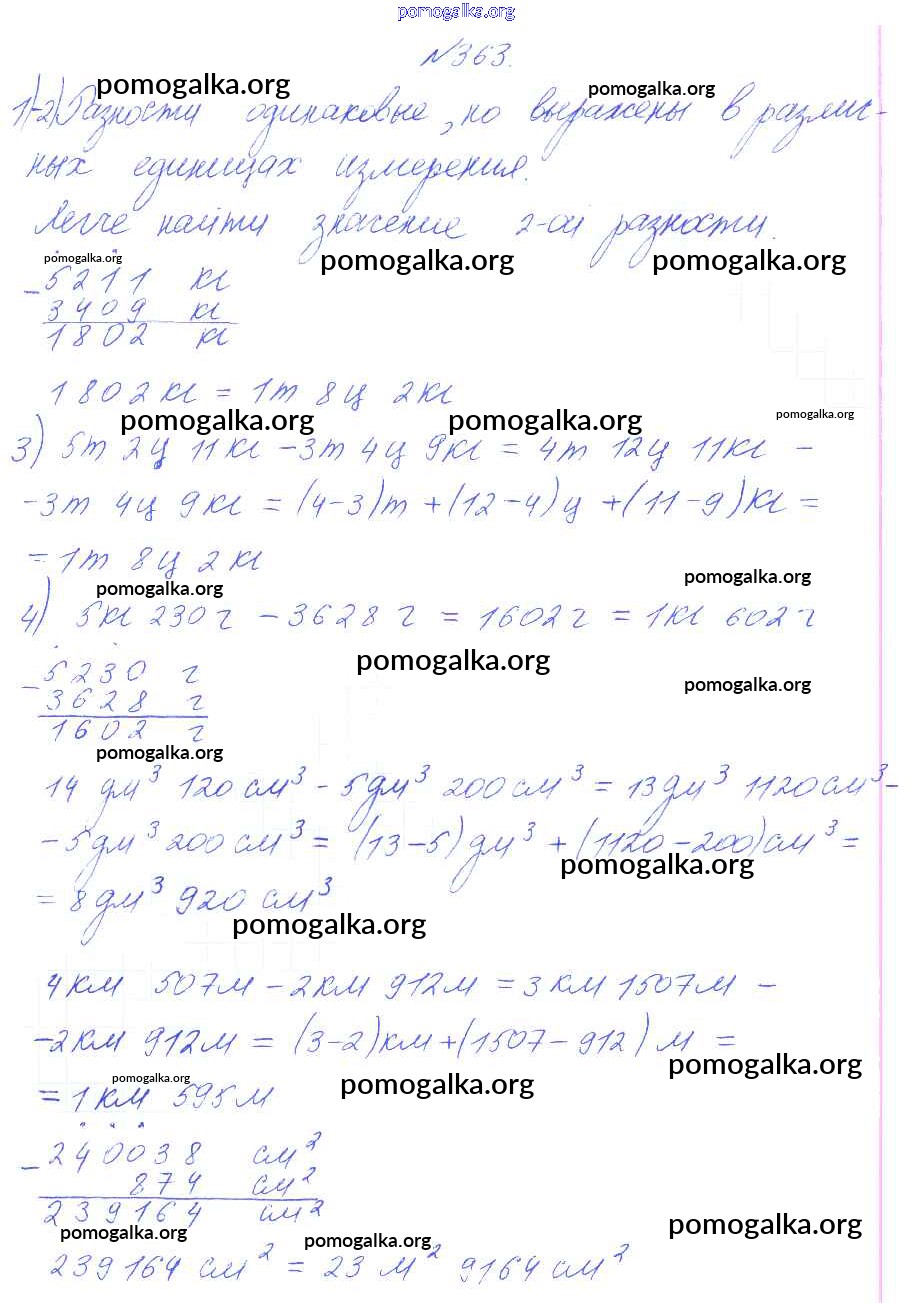 pomogalka.org
№363.
pomogalka.org
pomogalka.org
1)-2) Разности одинаковые, но выражены в различ-
ных единицах измерения.
Легче найти значение 2-ой разности.
pomogalka.org
pomogalka.org
pomogalka.org
- 5211 кг
3409 кг
1802 кг
1802 кг = 1т 8ц 2кг
pomogalka.org
pomogalka.org
pomogalka.org
3) 5т 2ц 11кг - 3т 4ц 9кг = 4т 12ц 11кг -
- 3т 4ц 9кг = (4-3)т + (12-4)ц + (11-9)кг =
= 1т 8ц 2кг
pomogalka.org
pomogalka.org
4) 5кг 230г - 3628г = 1602г = 1кг 602г
pomogalka.org
- 5230 г
pomogalka.org
3628 г
1602 г
pomogalka.org
14 дм³ 120 см³ - 5дм³ 200 см³ = 13дм³ 1120 см³ -
- 5дм³ 200 см³ = (13-5)дм³ + (1120-200)см³ =
pomogalka.org
= 8дм³ 920 см³
pomogalka.org
4км 507м - 2км 912м = 3км 1507м -
- 2км 912м = (3-2)км + (1507-912)м =
pomogalka.org
pomogalka.org
pomogalka.org
= 1км 595м
- 240038 см²
874 см²
239164 см²
pomogalka.org
pomogalka.org
pomogalka.org
239164 см² = 23 м² 9164 см²